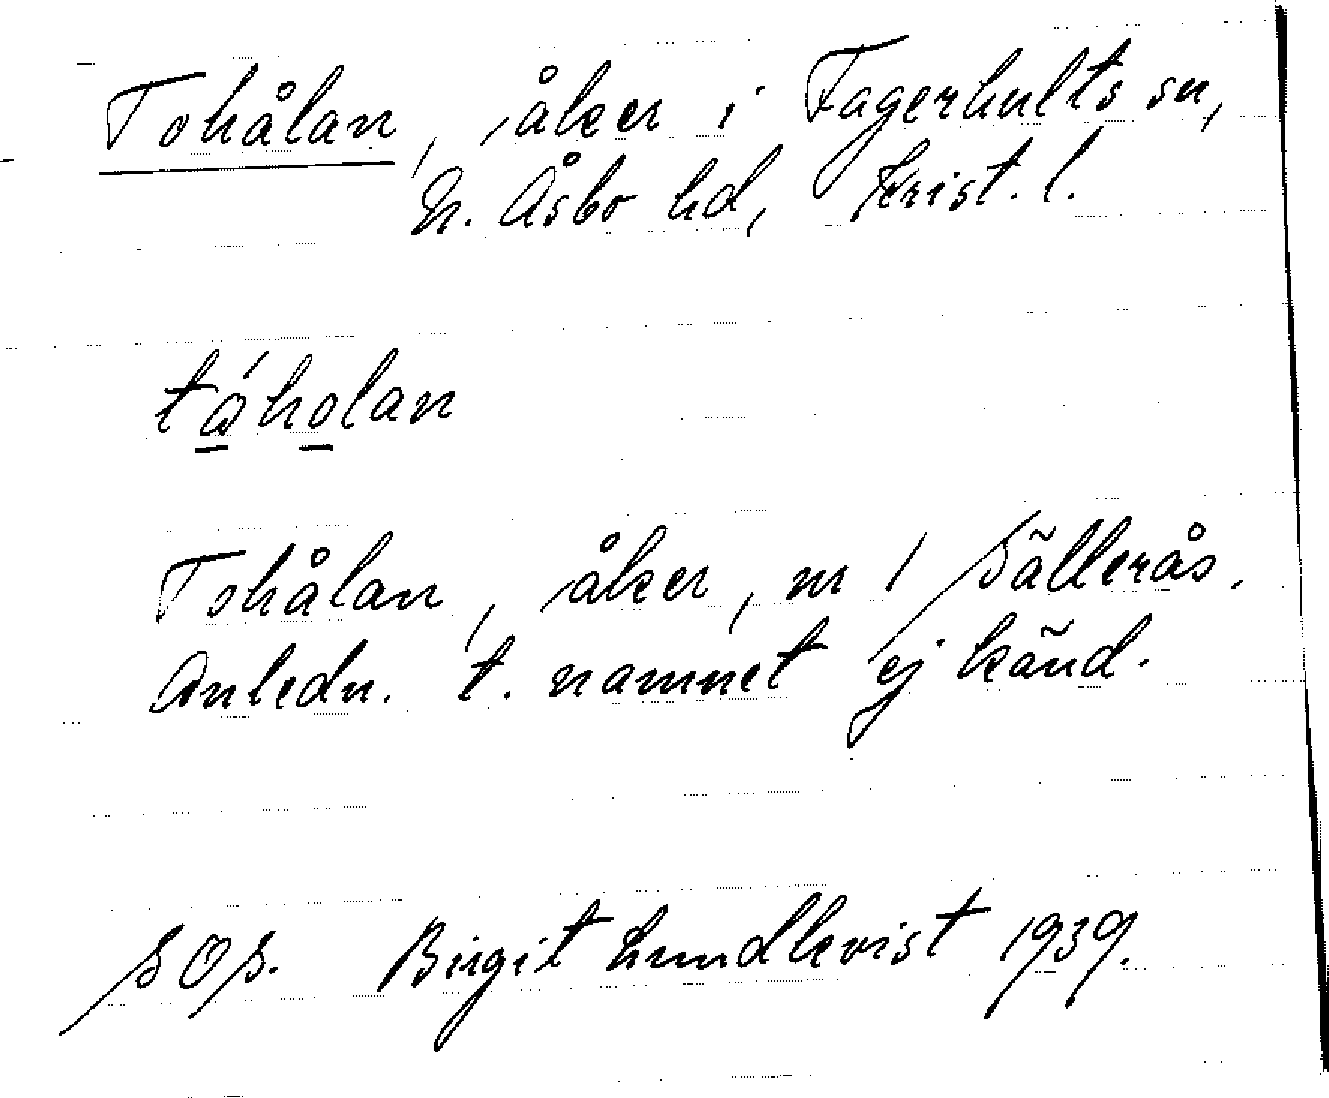 Tohålan, åker i Fagerhults sn,
N. Åsbo hd, Krist. l.
tóholan
Tohålan, åker, nr 1 Sällerås.
Anledn. t. namnet ej känd.
SOS. Birgit Lundkvist 1939.